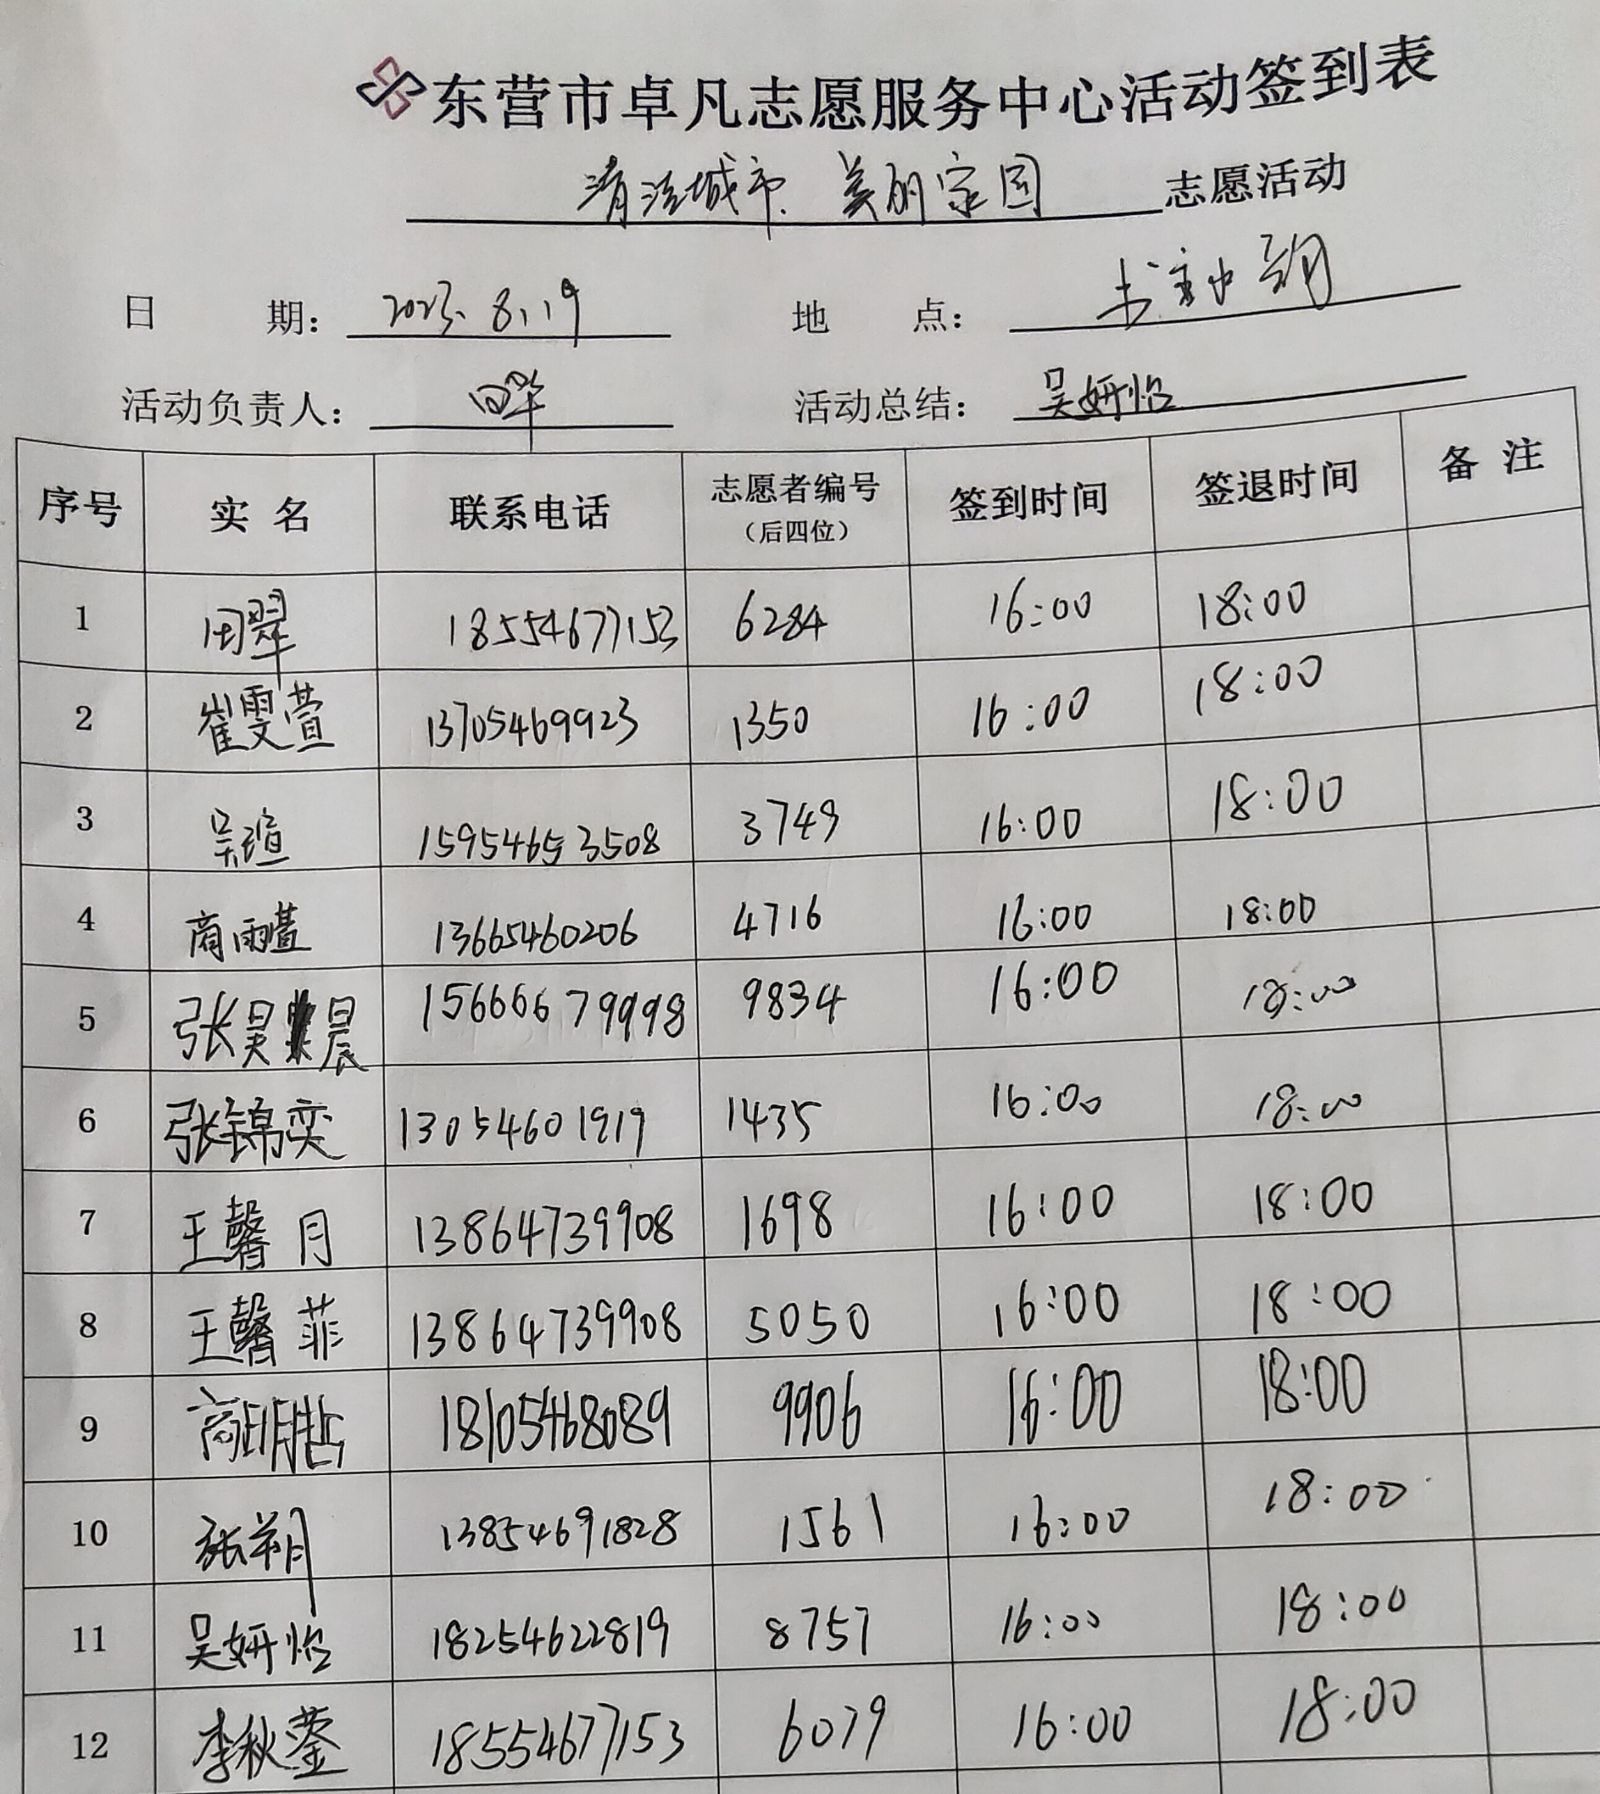 东营市卓凡志愿服务中心活动签到表
清洁城市、美丽家园 志愿活动
日 期： 2023.8.19 地 点：
活动负责人： 田翠 活动总结： 吴妍怡
序号 实名 联系电话 志愿者编号（后四位） 签到时间 签退时间 备注
1 田翠 18554677153 6284 16:00 18:00
2 崔雯萱 13705469923 1350 16:00 18:00
3 吴瑄 15954653508 3749 16:00 18:00
4 商雨萱 13665460206 4716 16:00 18:00
5 张昊晨 15666679998 9834 16:00 18:00
6 张锦奕 13054601919 1435 16:00 18:00
7 王馨月 13864739908 1698 16:00 18:00
8 王馨菲 13864739908 5050 16:00 18:00
9 商明喆 18105468089 9906 16:00 18:00
10 张朔 13854691828 1561 16:00 18:00
11 吴妍怡 18254622819 8757 16:00 18:00
12 李秋蓥 18554677153 6079 16:00 18:00